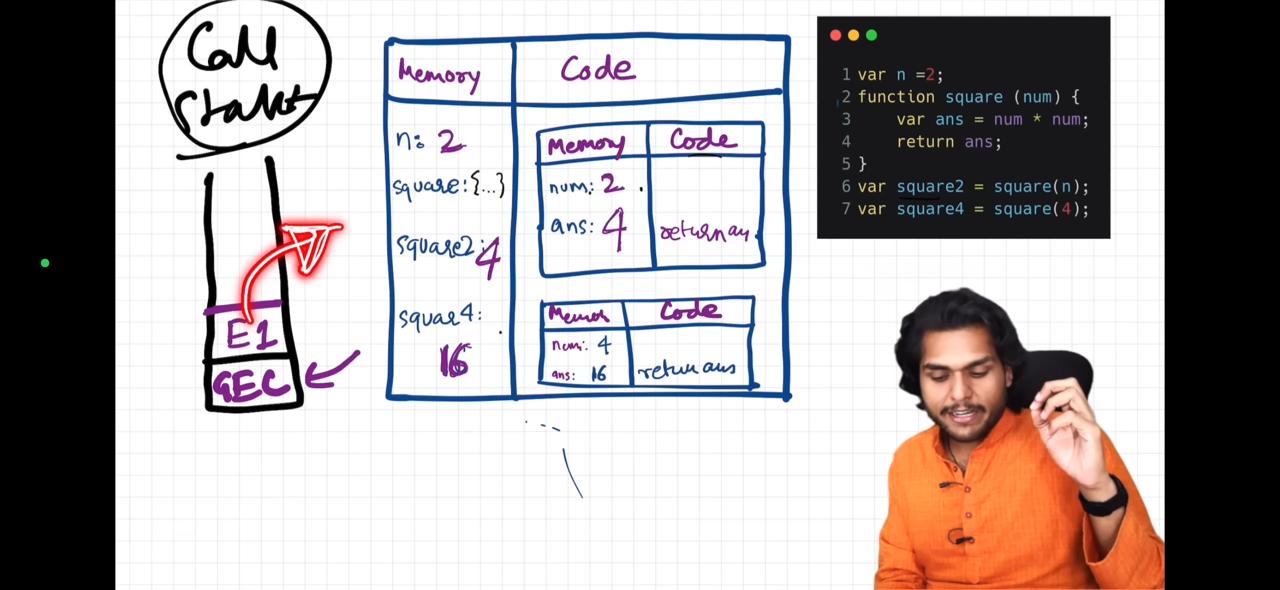 Call
Stakt
Memory Code
n: 2
square: {...}
square2: 4
squar4:
16
Memory Code
num: 2
ans: 4 return an
Memor Code
num: 4
ans: 16 return ans
E1
GEC
1 var n =2;
2 function square (num) {
3 var ans = num * num;
4 return ans;
5 }
6 var square2 = square(n);
7 var square4 = square(4);